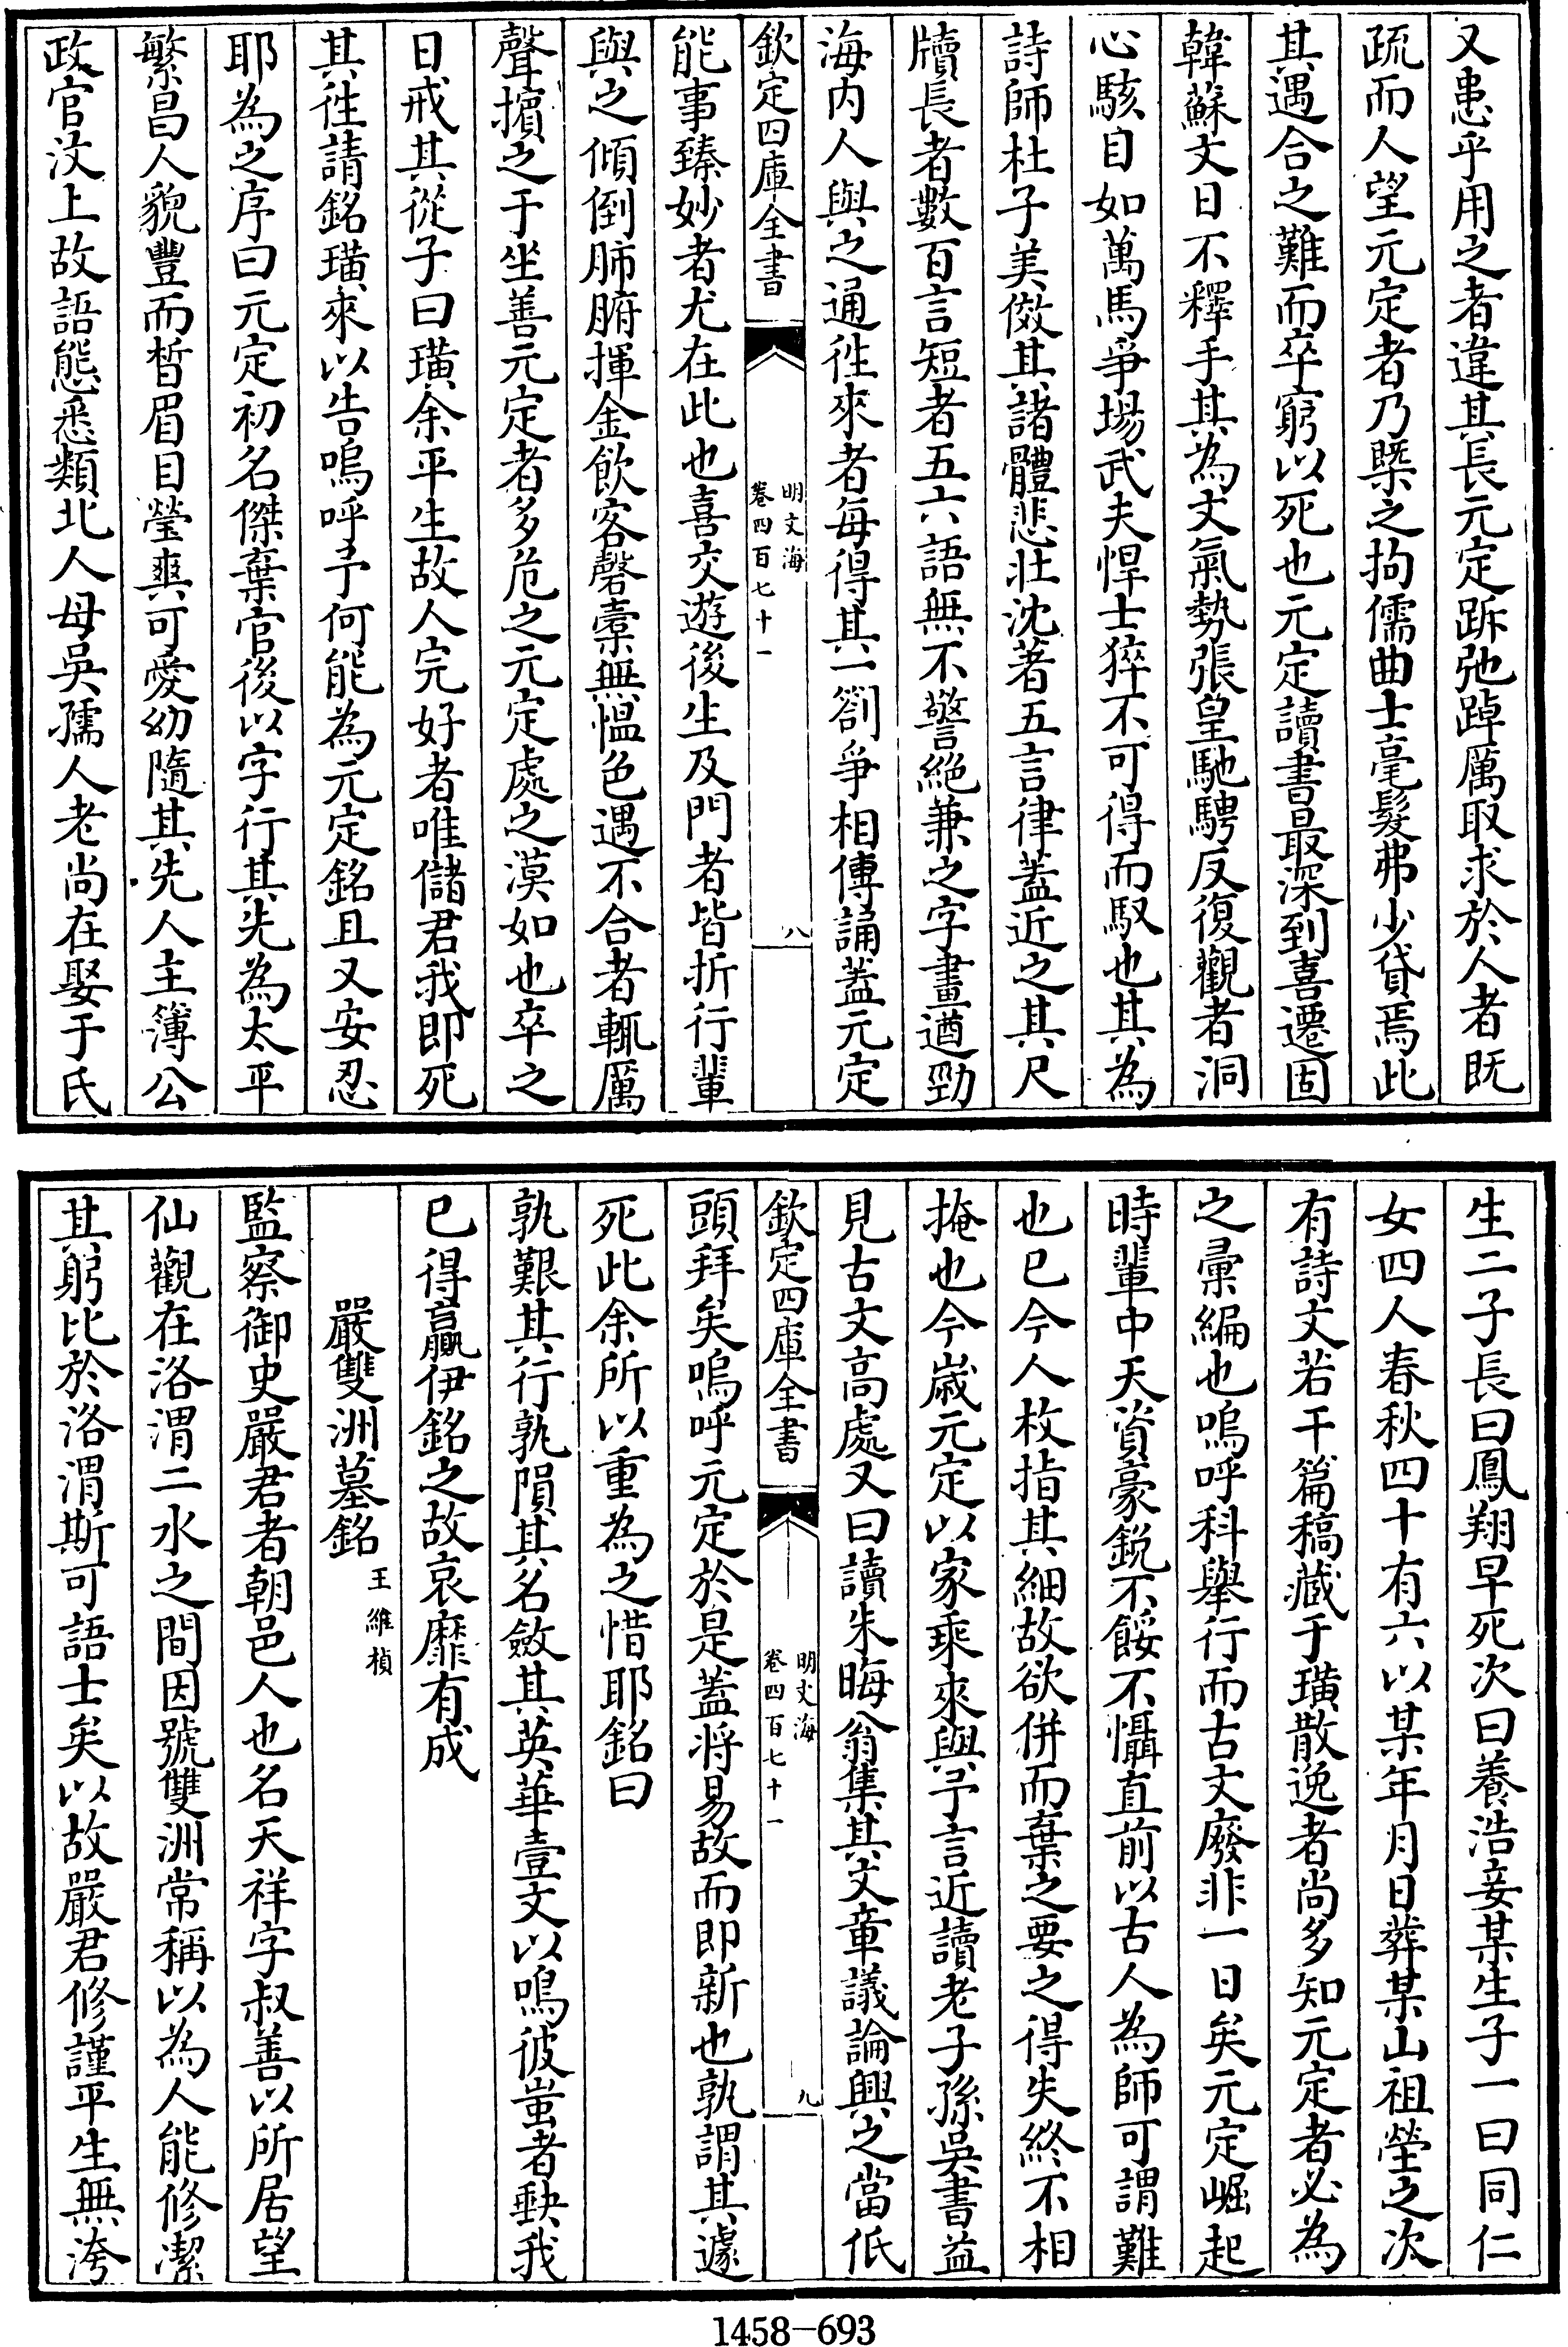 又患乎用之者違其長元定跅弛踔厲取求於人者既
疏而人望元定者乃槩之拘儒曲士毫髮弗少貸焉此
其遇合之難而卒窮以死也元定讀書最深到喜遷固
韓蘇文日不釋手其為文氣勢張皇馳騁反復觀者洞
心駭目如萬馬爭場武夫悍士猝不可得而馭也其為
詩師杜子美倣其諸體悲壯沈著五言律蓋近之其尺
牘長者數百言短者五六語無不警絕兼之字畫遒勁
海内人與之通徃來者每得其一劄爭相傳誦蓋元定
欽定四庫全書
明文海
卷四百七十一
八
能事臻妙者尤在此也喜交遊後生及門者皆折行輩
與之傾倒肺腑揮金飲客罄槖無愠色遇不合者輒厲
聲擯之于坐善元定者多危之元定處之漠如也卒之
日戒其從子曰璜余平生故人完好者唯儲君我即死
其徃請銘璜來以告嗚呼予何能為元定銘且又安忍
耶為之序曰元定初名傑棄官後以字行其先為太平
繁昌人貌豐而晳眉目瑩爽可愛幼隨其先人主簿公
政官汶上故語態悉類北人母吳孺人老尚在娶于氏
生二子長曰鳳翔早死次曰養浩妾某生子一曰同仁
女四人春秋四十有六以某年月日葬某山祖塋之次
有詩文若干篇稿藏于璜散逸者尚多知元定者必為
之彚編也嗚呼科舉行而古文廢非一日矣元定崛起
時輩中天資豪銳不餒不懾直前以古人為師可謂難
也已今人枚指其細故欲併而棄之要之得失終不相
掩也今歲元定以家乘來與予言近讀老子孫吳書益
見古文高處又曰讀朱晦翁集其文章議論興之當低
欽定四庫全書
明文海
卷四百七十一
九
頭拜矣嗚呼元定於是蓋將易故而即新也孰謂其遽
死此余所以重為之惜耶銘曰
孰艱其行孰隕其名斂其英華壹文以鳴彼蚩者䡖我
已得贏伊銘之故哀靡有成
嚴雙洲墓銘王維楨
監察御史嚴君者朝邑人也名天祥字叔善以所居望
仙觀在洛渭二水之間因號雙洲常稱以為人能修潔
其躬比於洛渭斯可語士矣以故嚴君修謹平生無洿
1458-693